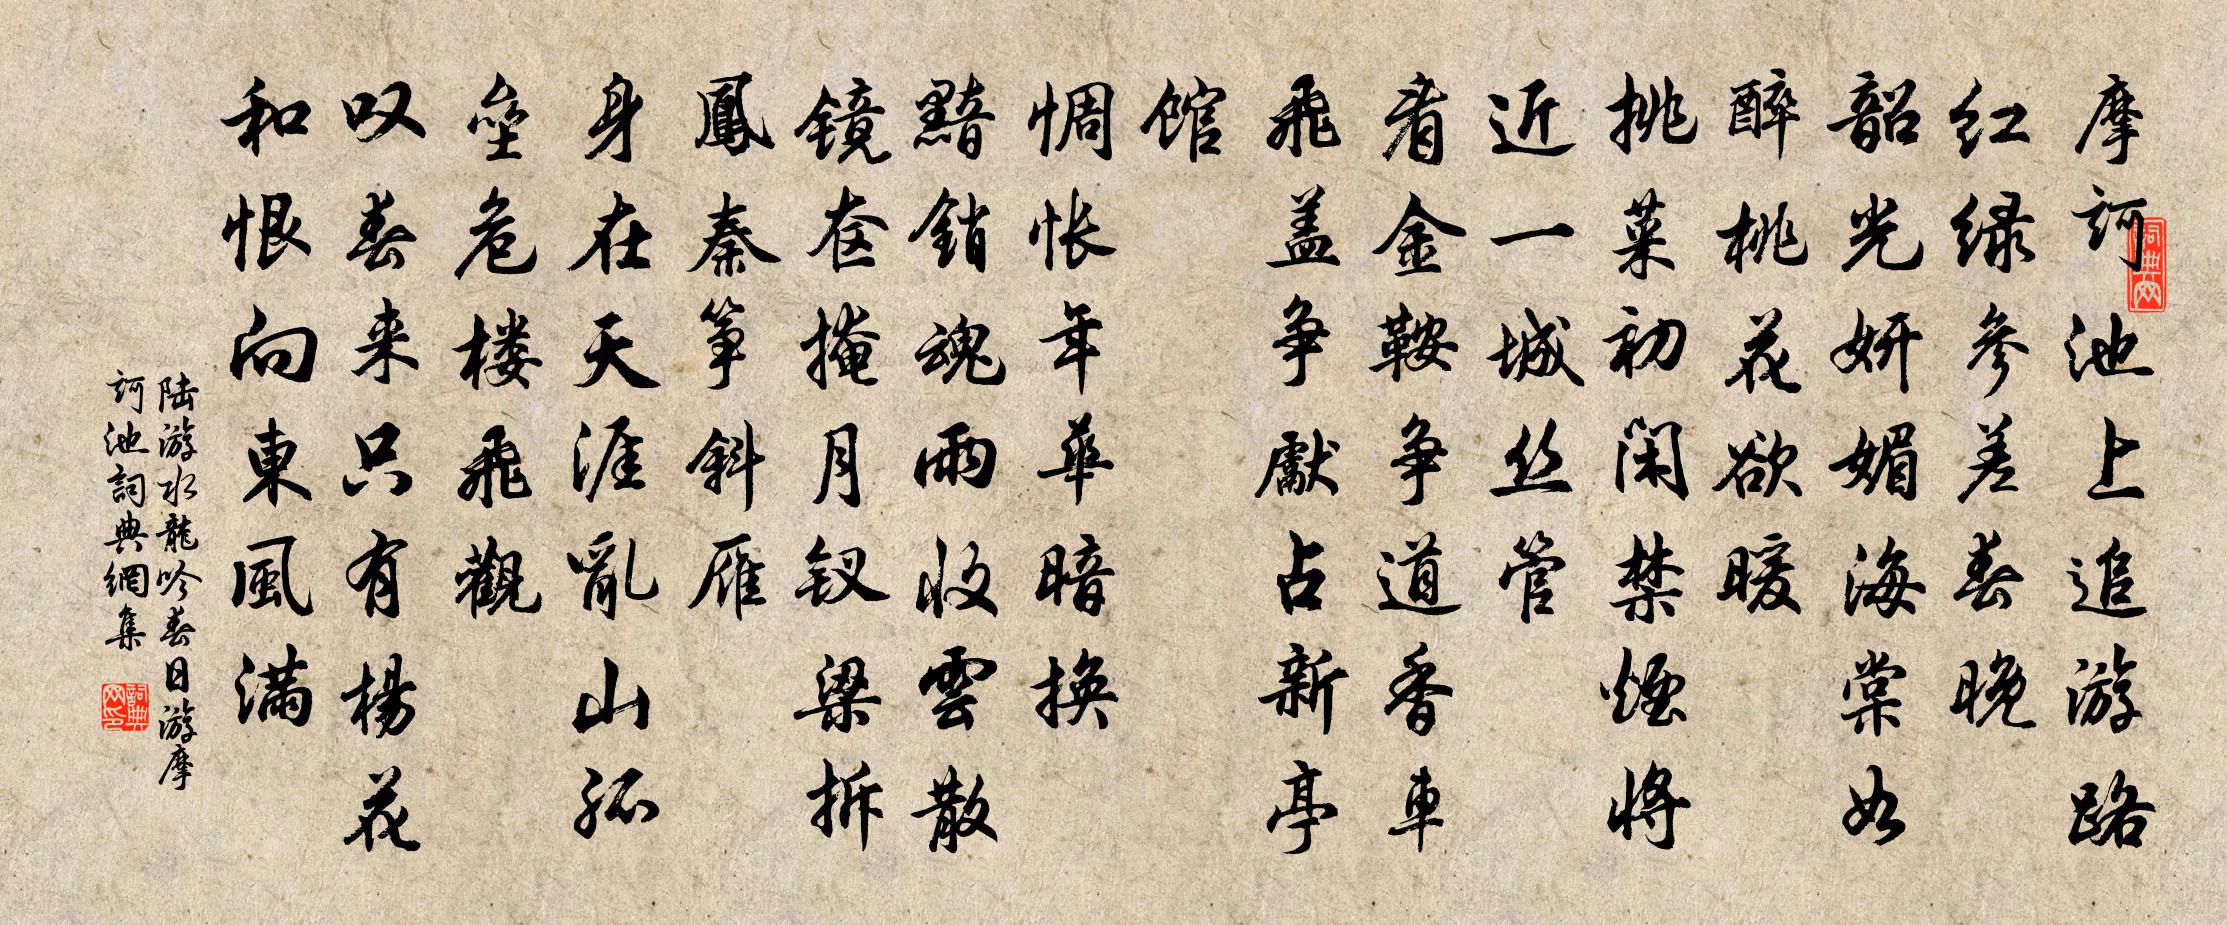 摩訶池上追游路
红绿参差春晚
韶光妍媚海棠如
醉桃花欲暖
挑菜初闲禁煙将
近一城丝管
看金鞍争道香車
飛盖争獻占新亭
馆
惆怅年華暗换
黯銷魂雨收雲散
镜奁掩月钗梁拆
鳳秦筝斜雁
身在天涯亂山孤
壘危楼飛觀
叹春来只有楊花
和恨向東風满
陆游水龍吟春日游摩
訶池詞典網集
詞典网
詞典网印